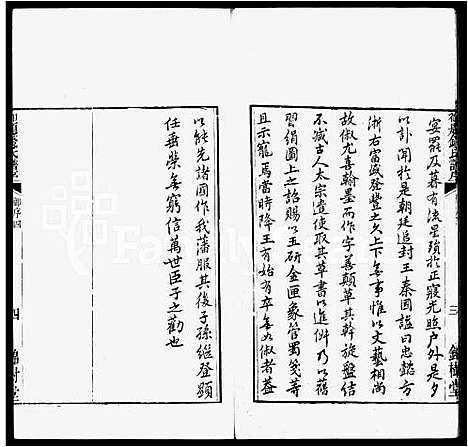 宴罷及暮有流星殞於正寢光照戶外是夕
以訃聞於是朝廷追封王秦國謚曰忠懿方
浙右富盛登豐之久上下無事惟以文藝相尚
故俶尤喜翰墨而作字善顛草其斡旋盤結
不減古人太宗遣使取其草書以進俶乃以舊
習絹圖上之詔賜以玉研金匣象管蜀箋等
且示寵焉當時降王方始有卒無如俶者蓋
三
錦樹堂
以能先諸國作我藩服其後子孫繼登顯
任垂榮無窮信萬世臣子之勸也
御序四
四
錦樹堂
Family